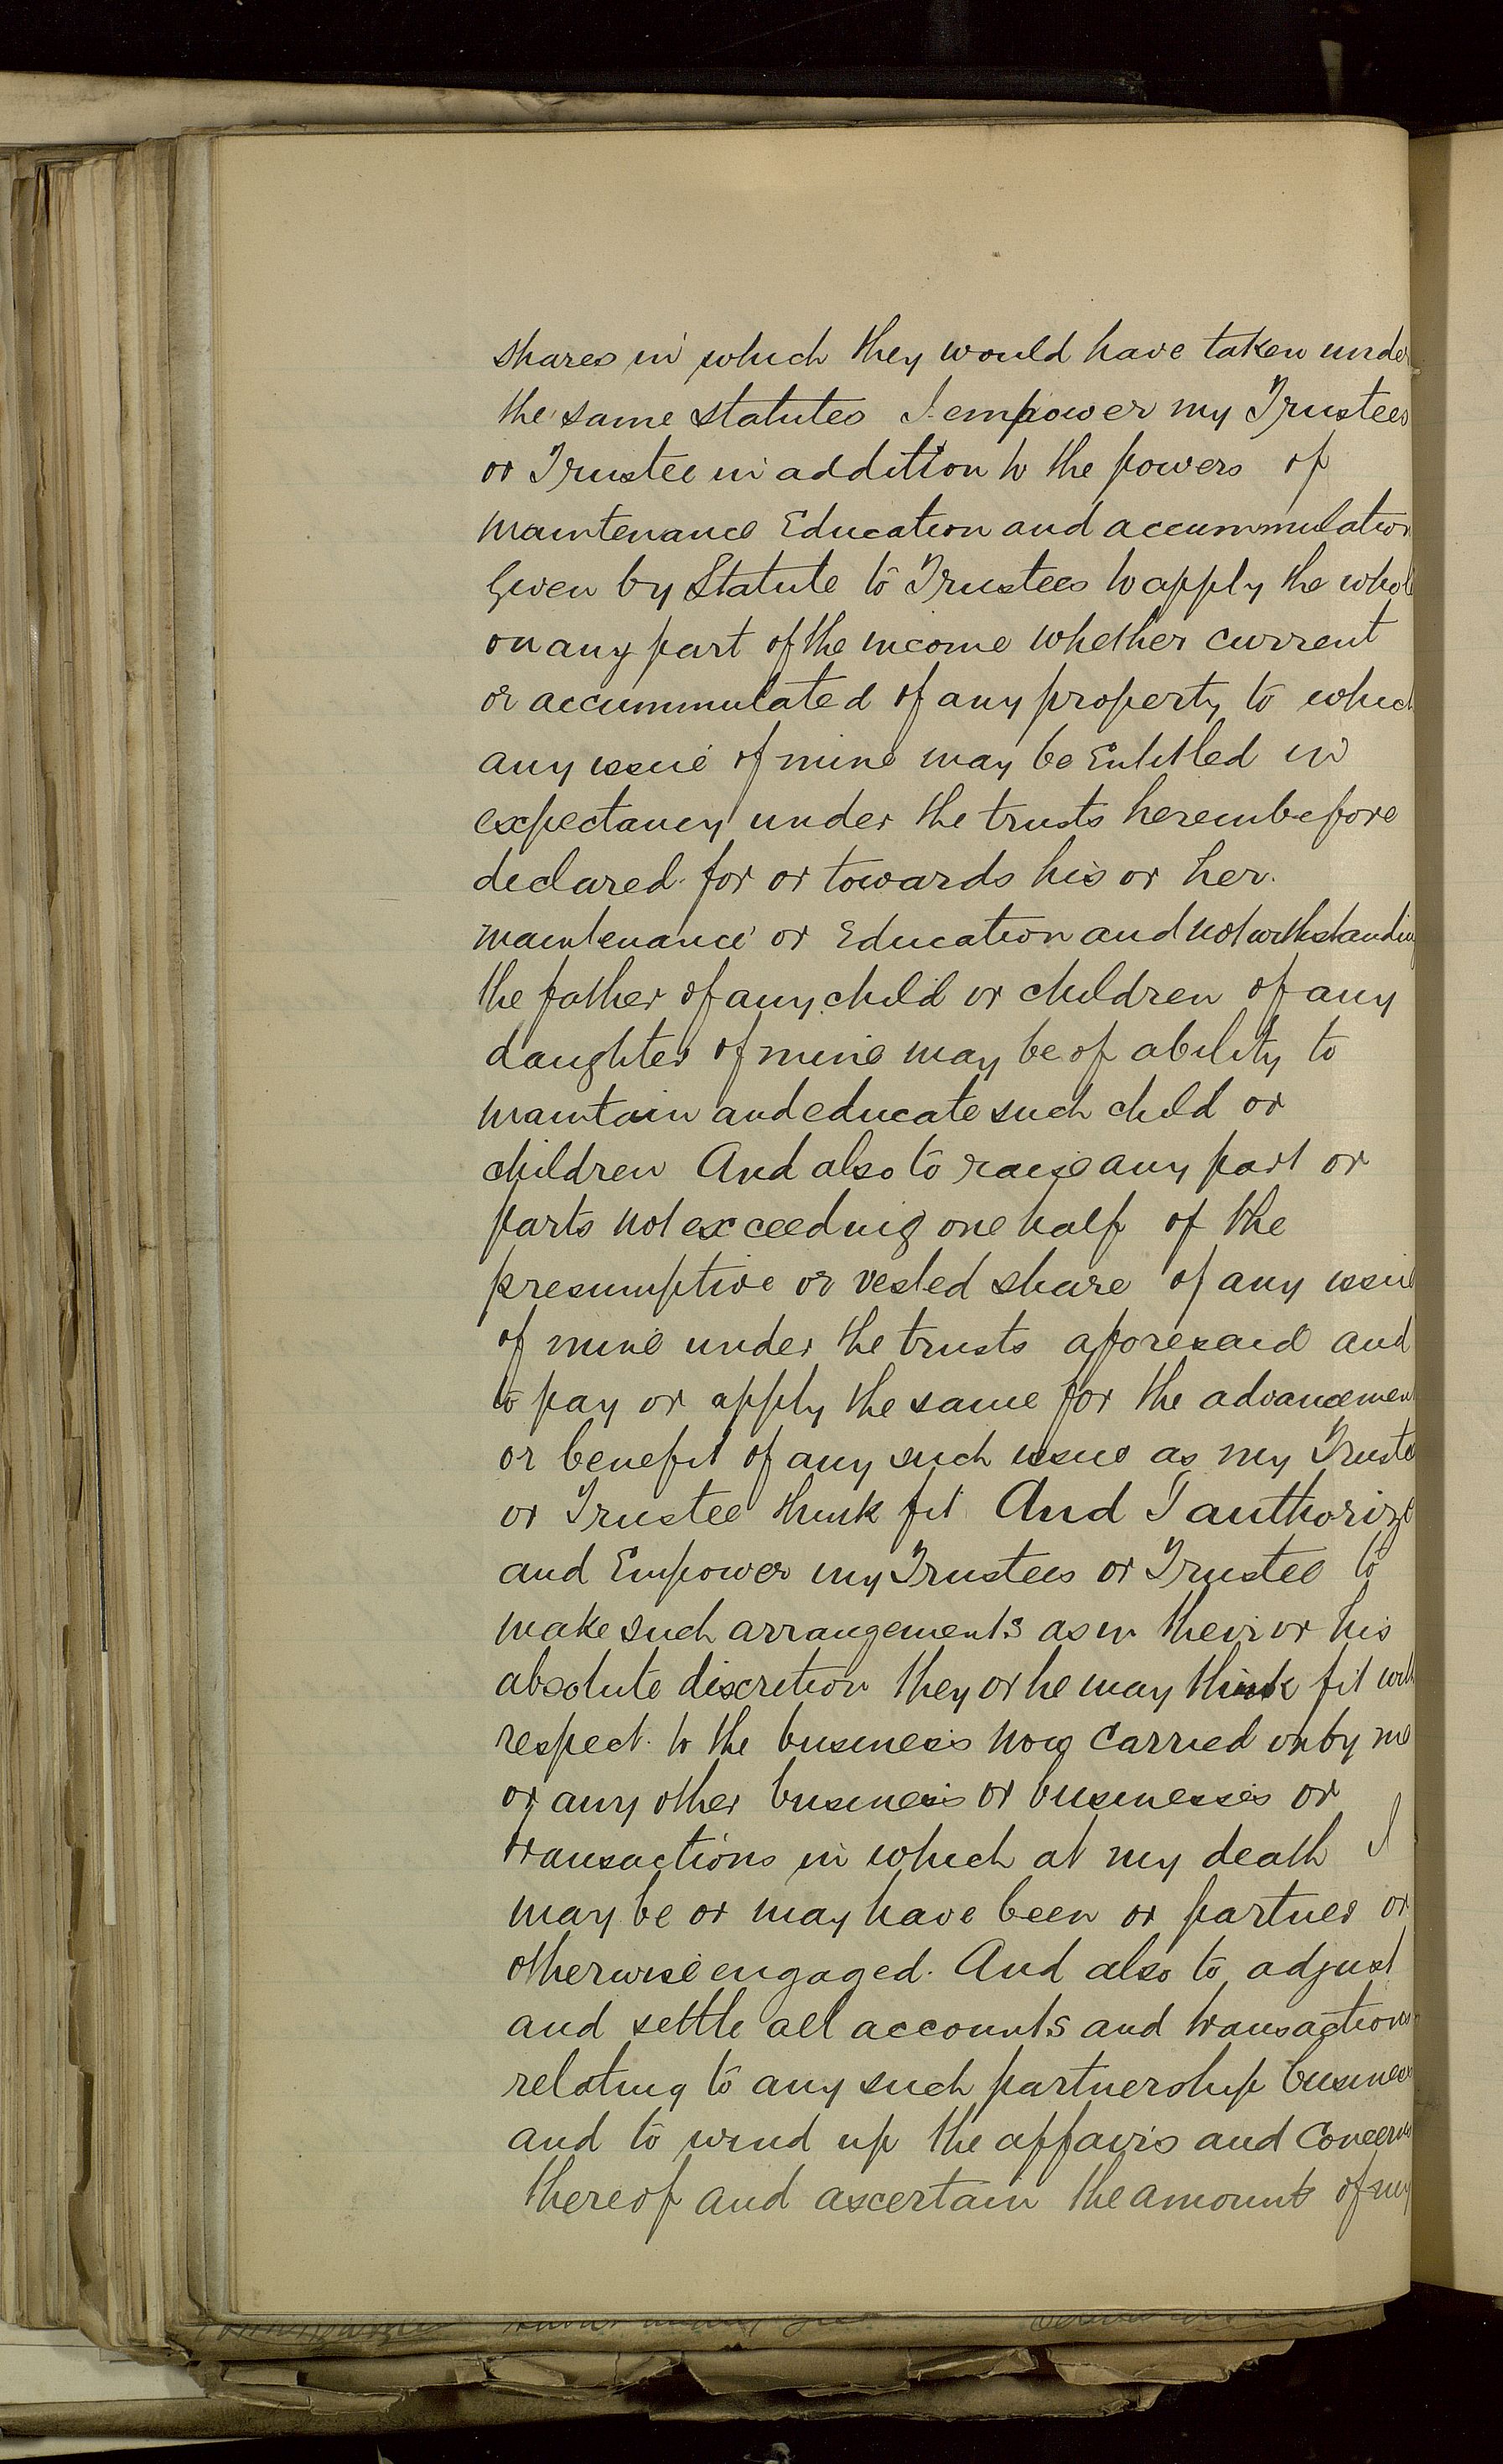 shares in which they would have taken unde
the same statutes I empower my Trustees
or Trustee in addition to the powers of
maintenance Education and accummulation
Given by Statute to Trustees to apply the whole
on any part of the income whether current
or accummulated of any property to which
any issue of mine may be Entitled in
expectancy under the trusts hereinbefore
declared for or towards his or her
maintenance or Education and notwithstanding
the father of any child or children of any
daughter of mine may be of ability to
maintain and educate such child or
children And also to raise any part or
parts not exceeding one half of the
presumptive or vested share of any issue
of mine under the trusts aforesaid and
to pay or apply the same for the advancemen
or benefit of any such issue as my Truste
or Trustee think fit And I authorize
and Empower my Trustees or Trustee to
make such arrangements as in their or his
absolute discretion they or he may think fit with
respect to the business now Carried on by me
or any other business or businesses or
transactions in which at my death I
may be or may have been or partner or
otherwise engaged. And also to adjust
and settle all accounts and transactions
relating to any such partnership business
and to wind up the affairs and Concerns
thereof and ascertain the amount of my